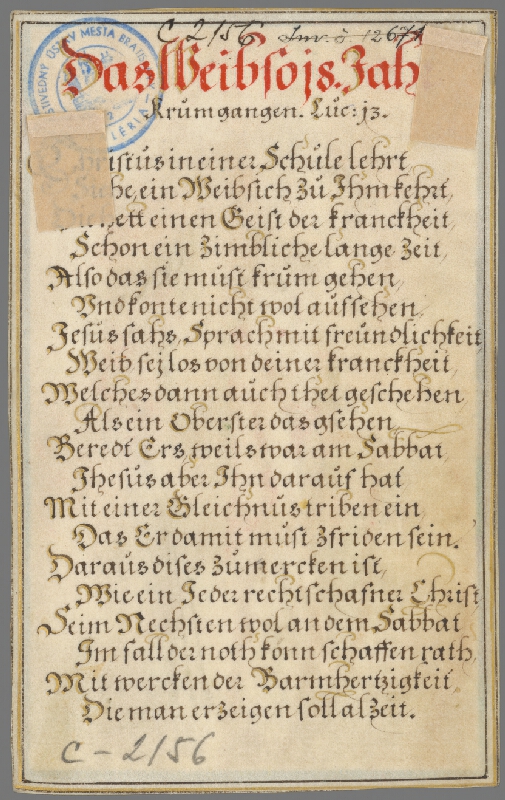 C-2156 Inv. č. 12671
Das Weib so js. Jah
Krum gangen. Luc: 13.
Christus in einer Schule lehrt,
ein Weib sich zu Ihm kehrt,
hett einen Geist der kranckheit,
Schon ein zimbliche lange zeit,
Also das sie must krum gehen,
Vnd konte nicht wol auffsehen,
Jesus sahs, Sprach mit freundlichkeit,
Weib sej los von deiner kranckheit,
Welches dann auch thet geschehen
Als ein Oberster das gsehen
Beredt Ers, weils war am Sabbat
Jhesus aber Ihn darauf hat
Mit einer Gleichnus triben ein,
Das Er damit must zfriden sein.
Daraus dises zu mercken ist,
Wie ein Jeder rechtschafner Christ
Seim Nechsten wol an dem Sabbat
Im fall der noth könn schaffen rath,
Mit wercken der Barmhertzigkeit
Die man erzeigen soll al zeit.
C-2156